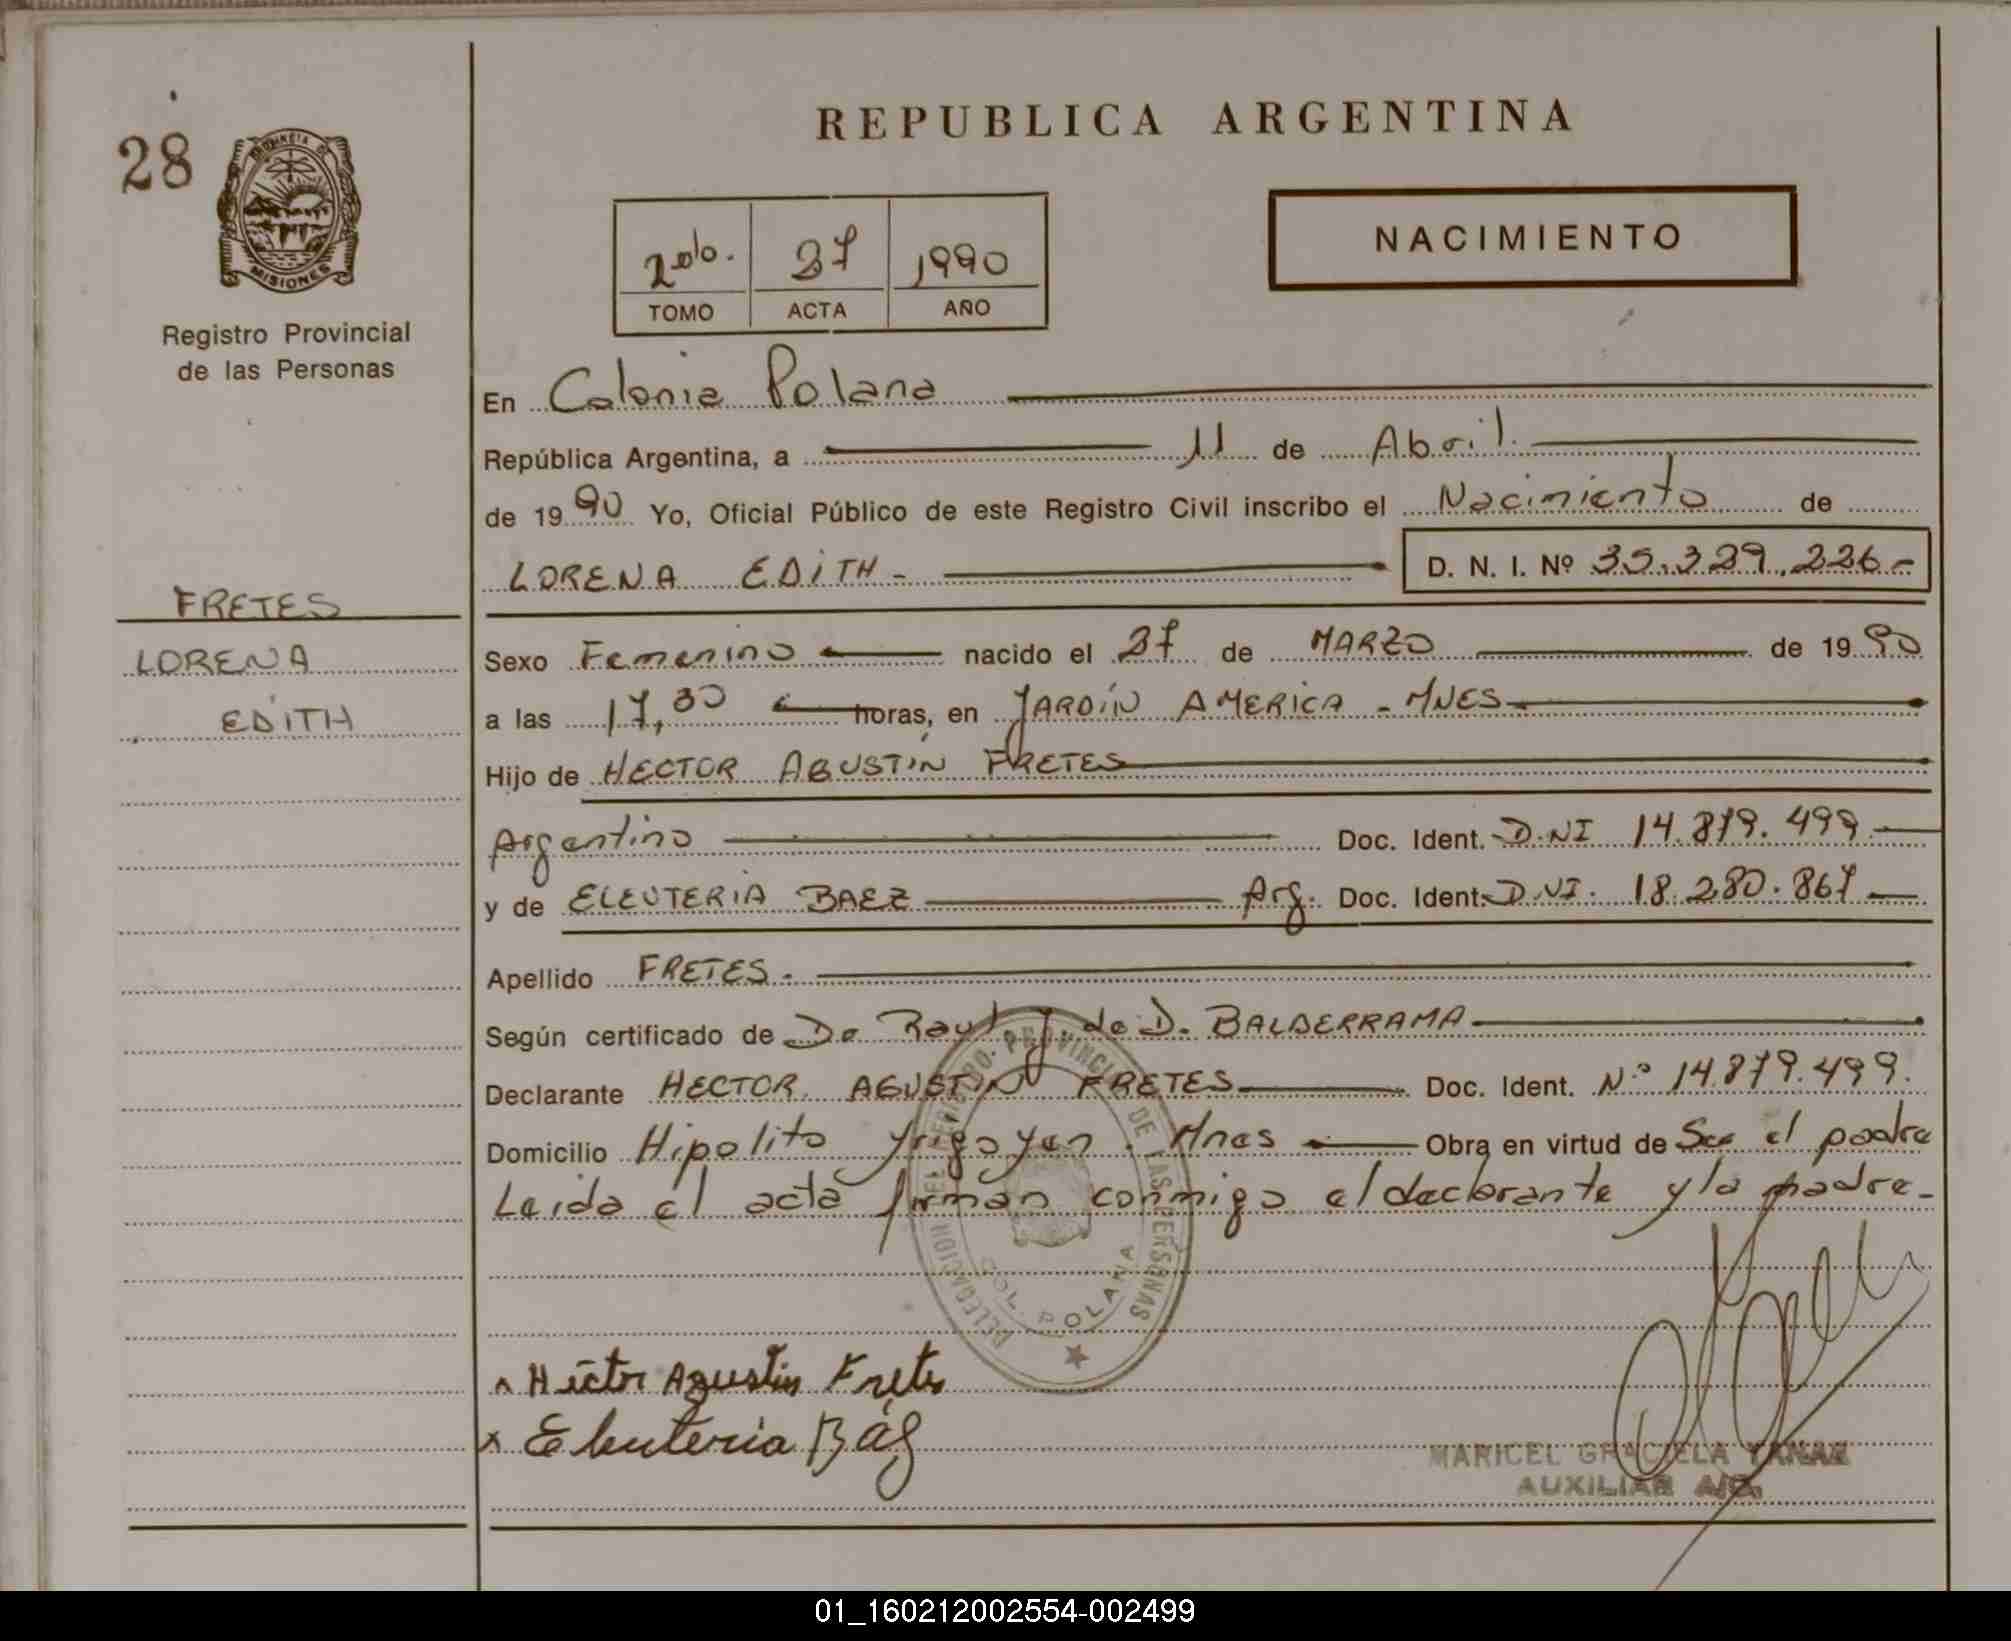 28
PROVINCIA DE
MISIONES
Registro Provincial
de las Personas
REPUBLICA ARGENTINA
2do. 27 1990
TOMO ACTA AÑO
NACIMIENTO
En Colonia Polana
República Argentina, a 11 de Abril
de 1990 Yo, Oficial Público de este Registro Civil inscribo el Nacimiento de
LORENA EDITH - D. N. I. Nº 35.329.226-
FRETES
LORENA
EDITH
Sexo Femenino nacido el 27 de MARZO de 1990
a las 17,30 horas, en JARDÍN AMERICA - MNES
Hijo de HECTOR AGUSTÍN FRETES
Argentino Doc. Ident. D.NI 14.879.499
y de ELEUTERIA BAEZ Arg. Doc. Ident. D.NI. 18.280.867
Apellido FRETES.
Según certificado de Da Raul y de D. BALDERRAMA
Declarante HECTOR AGUSTIN FRETES Doc. Ident. Nº 14.879.499.
Domicilio Hipolito Yrigoyen. Mnes Obra en virtud de Ser el padre
Leida el acta firman conmigo el declarante y la madre-
DELEGACION DEL REGISTRO PROVINCIAL DE LAS PERSONAS
COL. POLANA
x Héctor Agustin Fretes
x Eleuteria Báez
MARICEL GRACIELA
AUXILIAR A/C.
01_160212002554-002499